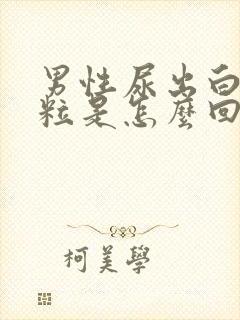 男性尿出白
粒是怎麼回
柯美學